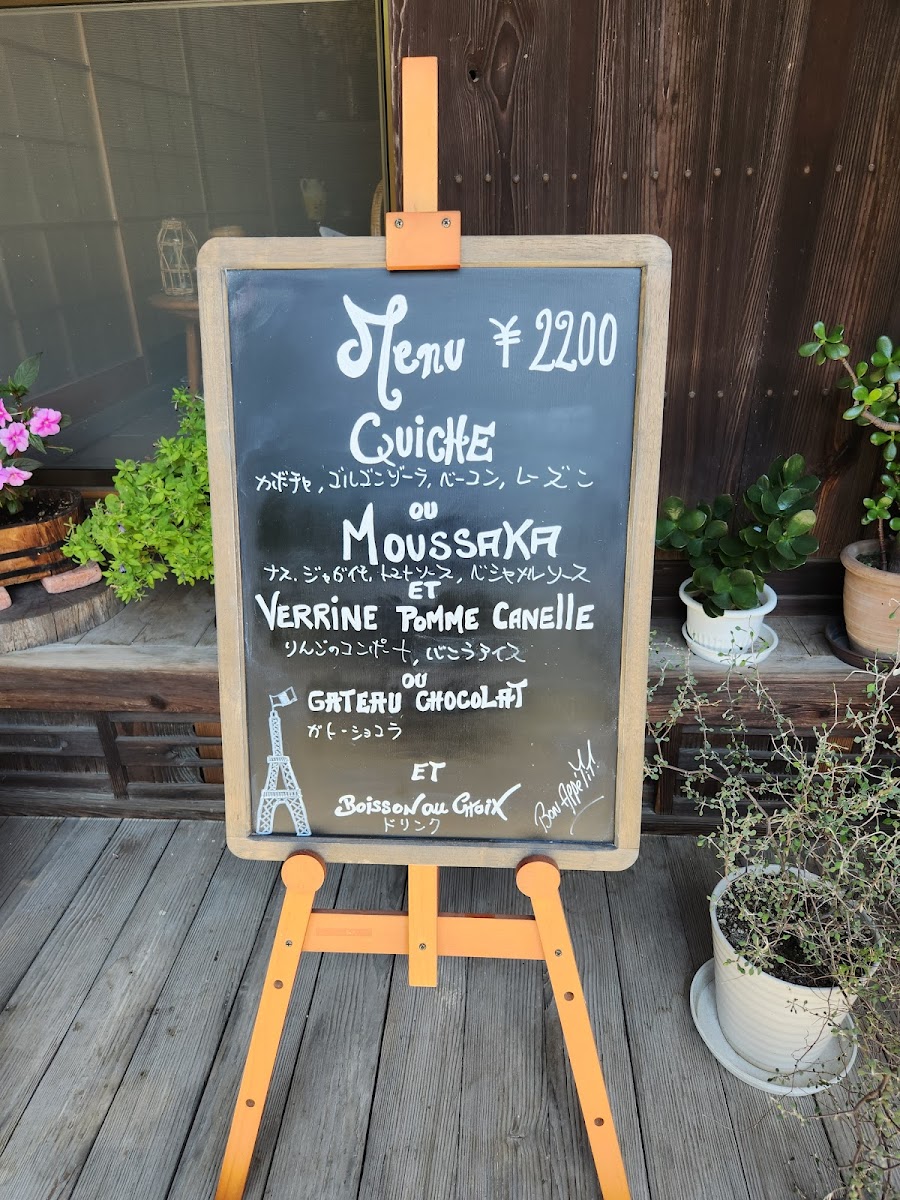 Menu ¥2200
QUICHE
カボチャ, ゴルゴンゾーラ, ベーコン, レーズン
OU
MOUSSAKA
ナス, ジャガイモ, トマトソース, ベシャメルソース
ET
VERRINE POMME CANELLE
りんごのコンポート, バニラアイス
OU
GATEAU CHOCOLAT
ガトーショコラ
ET
BOISSON AU CHOIX
ドリンク
BON APPÉTIT